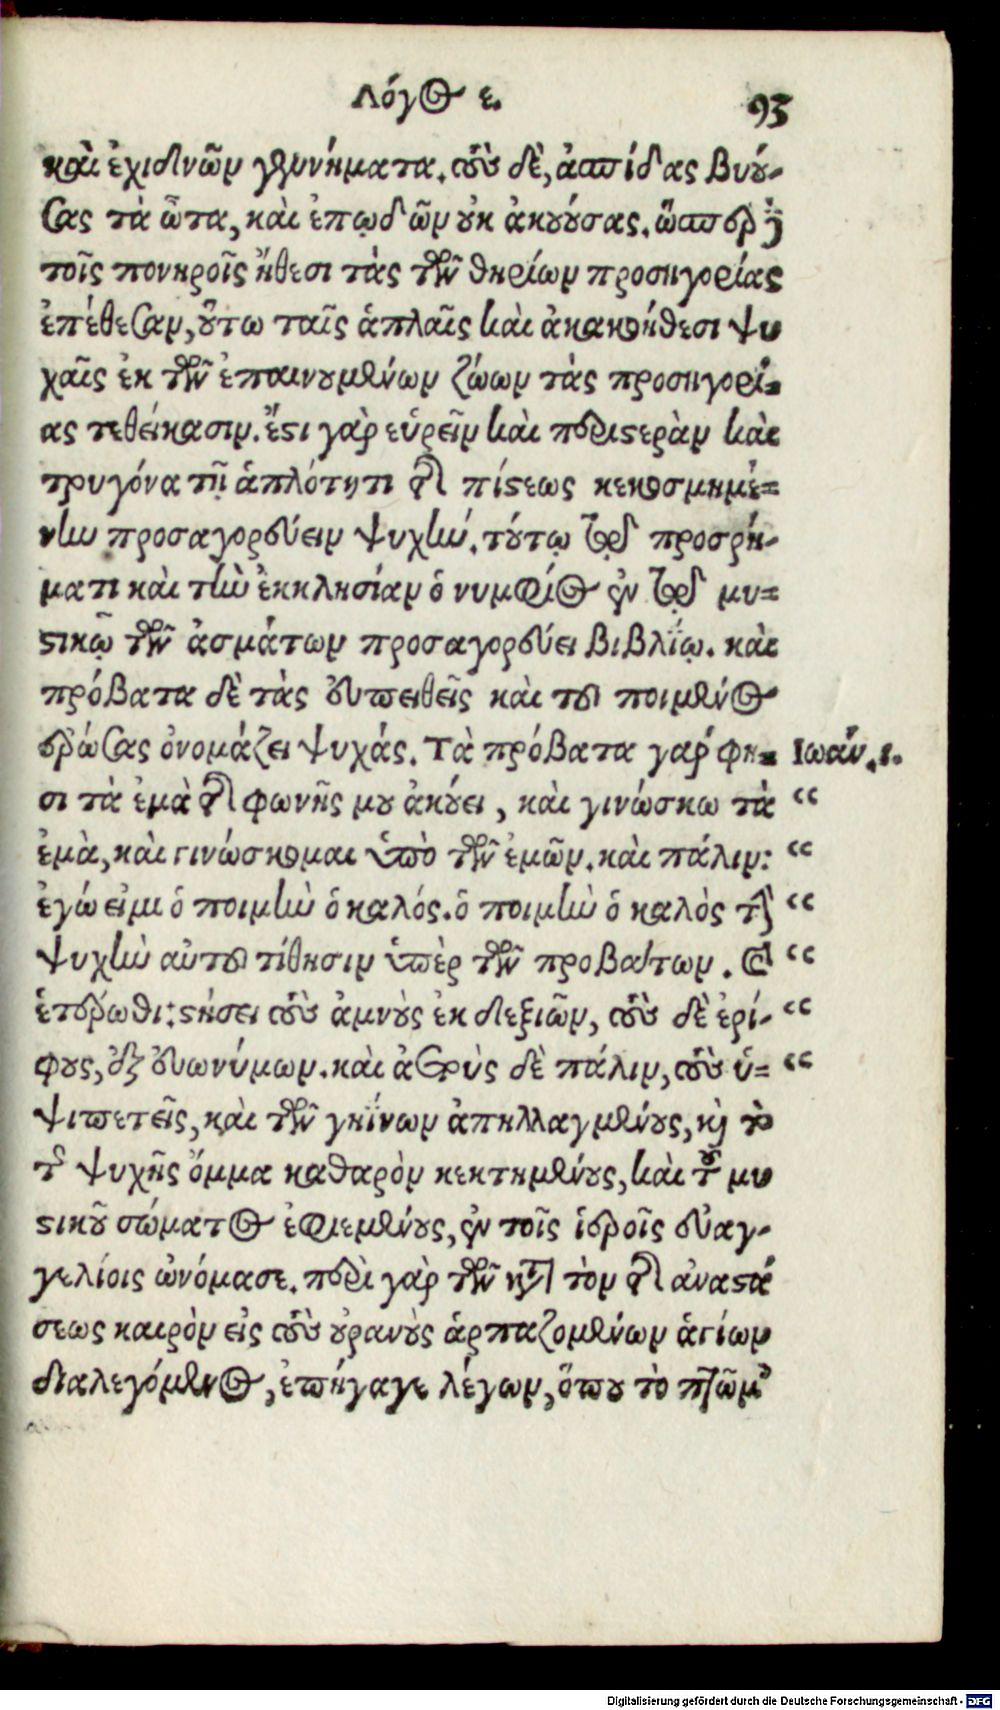 Λόγος ε. 93
καὶ ἐχιδνῶν γεννήματα. τοὺς δὲ, ἀσπίδας βυού-
σας τὰ ὦτα, καὶ ἐπῳδῶν οὐκ ἀκουούσας. ὥσπερ δὲ
τοῖς πονηροῖς ἤθεσι τὰς τῶν θηρίων προσηγορίας
ἐπέθεσαν, οὕτω ταῖς ἁπλαῖς καὶ ἀκακοήθεσι ψυ
χαῖς ἐκ τῶν ἐπαινουμένων ζώων τὰς προσηγορί-
ας τεθείκασιν. ἔστι γὰρ εὑρεῖν καὶ περιστερὰν καὶ
τρυγόνα τῇ ἁπλότητι τῆς πίστεως κεκοσμημέ-
νην προσαγορεύειν ψυχήν. τούτῳ τῷ προσρή-
ματι καὶ τὴν ἐκκλησίαν ὁ νυμφίος ἐν τῷ μυ-
στικῷ τῶν ἀσμάτων προσαγορεύει βιβλίῳ. καὶ
πρόβατα δὲ τὰς εὐπειθεῖς καὶ τοῦ ποιμένος
ἐρώσας ὀνομάζει ψυχάς. Τὰ πρόβατα γάρ φη- Ιωάν. ι.
σι τὰ ἐμὰ τῆς φωνῆς μου ἀκούει, καὶ γινώσκω τὰ “
ἐμὰ, καὶ γινώσκομαι ὑπὸ τῶν ἐμῶν. καὶ πάλιν: “
ἐγώ εἰμι ὁ ποιμὴν ὁ καλός. ὁ ποιμὴν ὁ καλὸς τὴν “
ψυχὴν αὐτοῦ τίθησιν ὑπὲρ τῶν προβάτων. καὶ “
ἑτέρωθι: στήσει τοὺς ἀμνοὺς ἐκ δεξιῶν, τοὺς δὲ ἐρί- “
φους, ἐξ εὐωνύμων. καὶ ἀετοὺς δὲ πάλιν, τοὺς ὑ- “
ψιπετεῖς, καὶ τῶν γηΐνων ἀπηλλαγμένους, καὶ τὸ
τῆς ψυχῆς ὄμμα καθαρὸν κεκτημένους, καὶ τοῦ μυ
στικοῦ σώματος ἐφιεμένους, ἐν τοῖς ἱεροῖς εὐαγ-
γελίοις ὠνόμασε. περὶ γὰρ τῶν κατὰ τὸν τῆς ἀναστά
σεως καιρὸν εἰς τοὺς οὐρανοὺς ἁρπαζομένων ἁγίων
διαλεγόμενος, ἐπήγαγε λέγων, ὅπου τὸ πτῶμα
Digitalisierung gefördert durch die Deutsche Forschungsgemeinschaft - DFG